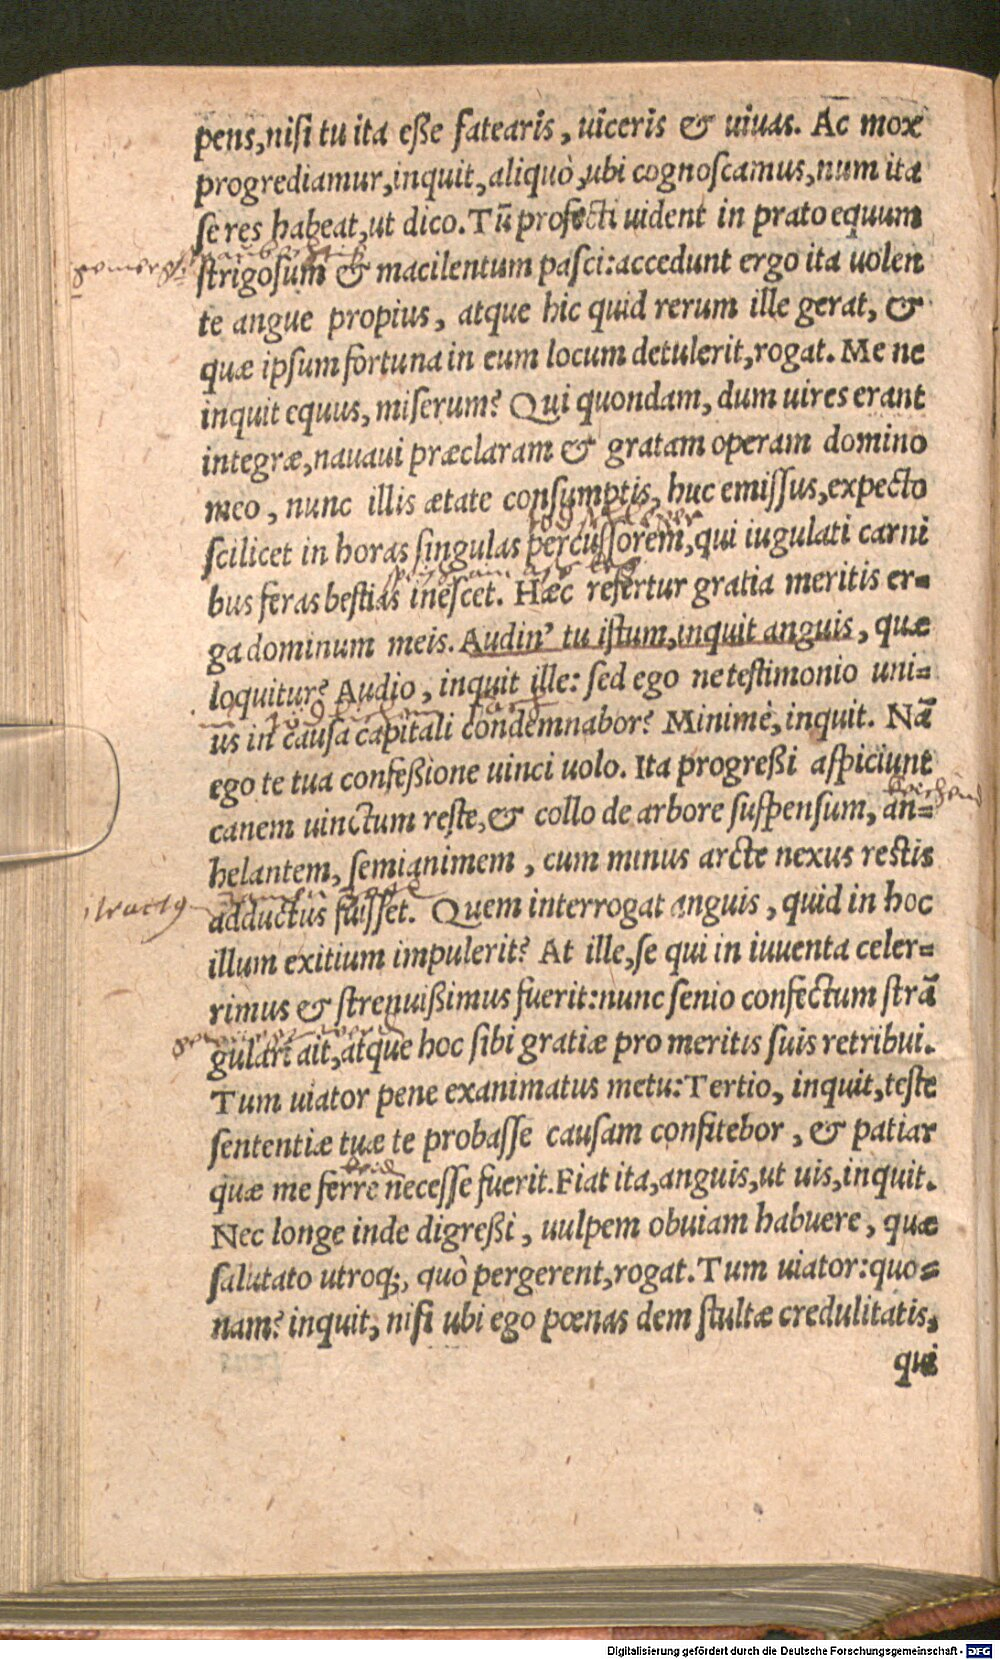 pens, nisi tu ita esse fatearis, uiceris & uiuas. Ac mox
progrediamur, inquit, aliquò, ubi cognoscamus, num ita
se res habeat, ut dico. Tū profecti uident in prato equum
strigosum & macilentum pasci: accedunt ergo ita uolen
te angue propius, atque hic quid rerum ille gerat, &
quæ ipsum fortuna in eum locum detulerit, rogat. Me ne
inquit equus, miserum? Qui quondam, dum uires erant
integræ, nauaui præclaram & gratam operam domino
meo, nunc illis ætate consumptis, huc emissus, expecto
scilicet in horas singulas percussorem, qui iugulati carni
bus feras bestias inescet. Hæc refertur gratia meritis er=
ga dominum meis. Audin' tu istum, inquit anguis, quæ
loquitur? Audio, inquit ille: sed ego ne testimonio uni=
us in causa capitali condemnabor? Minimè, inquit. Nā
ego te tua confeßione uinci uolo. Ita progreßi aspiciunt
canem uinctum reste, & collo de arbore suspensum, an=
helantem, semianimem, cum minus arcte nexus restis
adductus fuisset. Quem interrogat anguis, quid in hoc
illum exitium impulerit? At ille, se qui in iuuenta celer=
rimus & strenuißimus fuerit: nunc senio confectum strā
gulari ait, atque hoc sibi gratiæ pro meritis suis retribui.
Tum uiator pene exanimatus metu: Tertio, inquit, teste
sententiæ tuæ te probasse causam confitebor, & patiar
quæ me ferre necesse fuerit. Fiat ita, anguis, ut uis, inquit.
Nec longe inde digreßi, uulpem obuiam habuere, quæ
salutato utroq;, quò pergerent, rogat. Tum uiator: quo=
nam? inquit, nisi ubi ego pœnas dem stultæ credulitatis,
qui
Digitalisierung gefördert durch die Deutsche Forschungsgemeinschaft - DFG